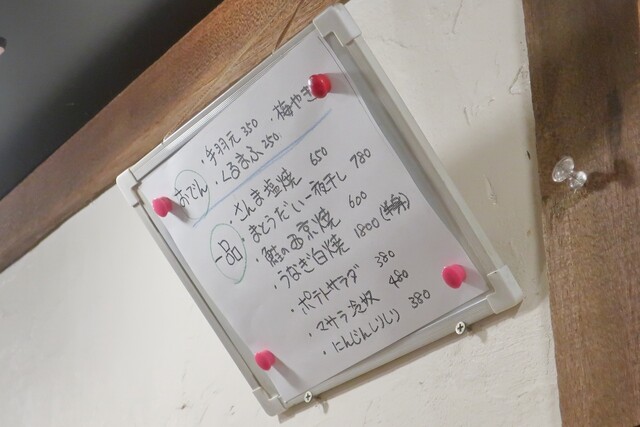 おでん
・手羽元 350 ・梅やき
・くるまふ 250
一品
・さんま塩焼 650
・まとうだい一夜干し 780
・鮭の西京焼 600
・うなぎ白焼 1800 (半身)
・ポテトサラダ 380
・マサラ冷奴 480
・にんじんしりしり 380